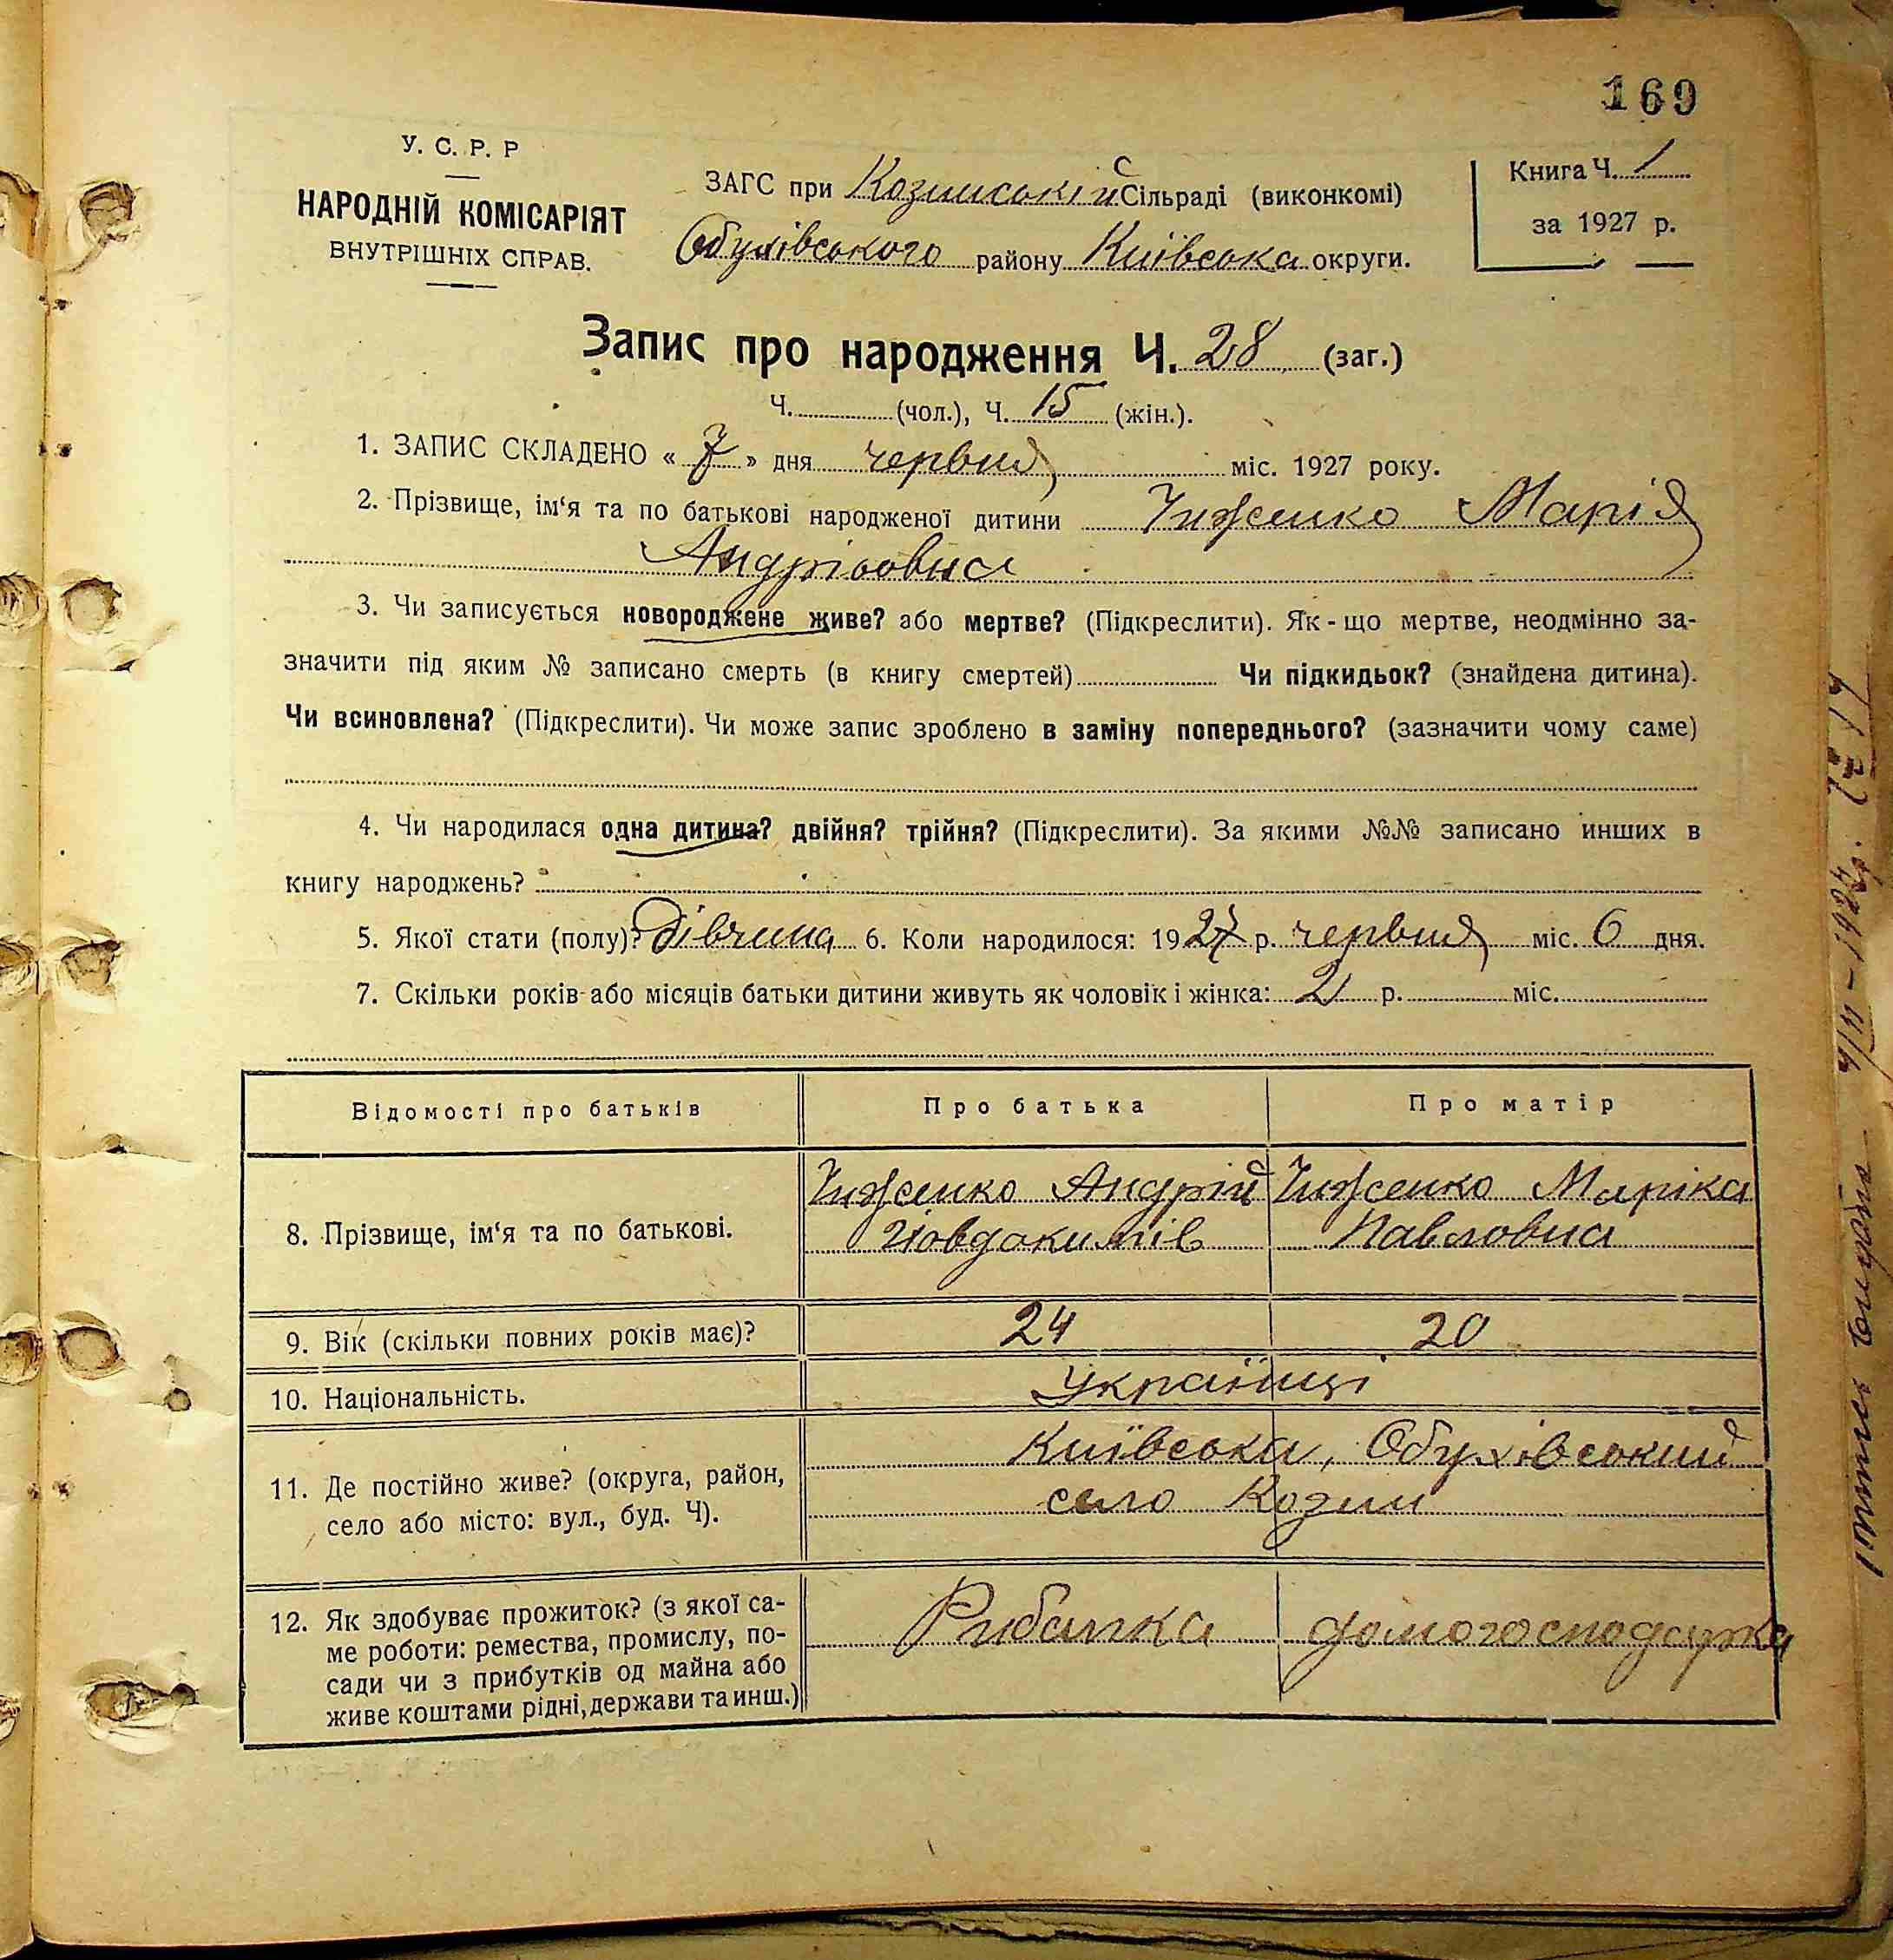 169
У. С. Р. Р
НАРОДНІЙ КОМІСАРІЯТ
ВНУТРІШНІХ СПРАВ.
ЗАГС при Козинській Сільраді (виконкомі)
Обухівського району Київська округи.
Книга Ч. 1
за 1927 р.
Запис про народження Ч. 28 (заг.)
Ч. (чол.), Ч. 15 (жін.).
1. ЗАПИС СКЛАДЕНО « 7 » дня червня міс. 1927 року.
2. Прізвище, ім‘я та по батькові народженої дитини Чиженко Марія
Андріівна
3. Чи записується новороджене живе? або мертве? (Підкреслити). Як-що мертве, неодмінно за-
значити під яким № записано смерть (в книгу смертей) Чи підкидьок? (знайдена дитина).
Чи всиновлена? (Підкреслити). Чи може запис зроблено в заміну попереднього? (зазначити чому саме)
4. Чи народилася одна дитина? двійня? трійня? (Підкреслити). За якими №№ записано инших в
книгу народжень?
5. Якої стати (полу)? дівчина 6. Коли народилося: 1927 р. червня міс. 6 дня.
7. Скільки років або місяців батьки дитини живуть як чоловік і жінка: 2 р. міс.
Відомості про батьків Про батька Про матір
8. Прізвище, ім‘я та по батькові.
Чиженко Андрій Чиженко Маріка
Йовдокимів Павловна
9. Вік (скільки повних років має)? 24 20
10. Національність. Українці
11. Де постійно живе? (округа, район,
село або місто: вул., буд. Ч).
Київська, Обухівський
село Козин
12. Як здобуває прожиток? (з якої са-
ме роботи: ремества, промислу, по-
сади чи з прибутків од майна або
живе коштами рідні, держави та инш.)
Рибалка домогосподарка